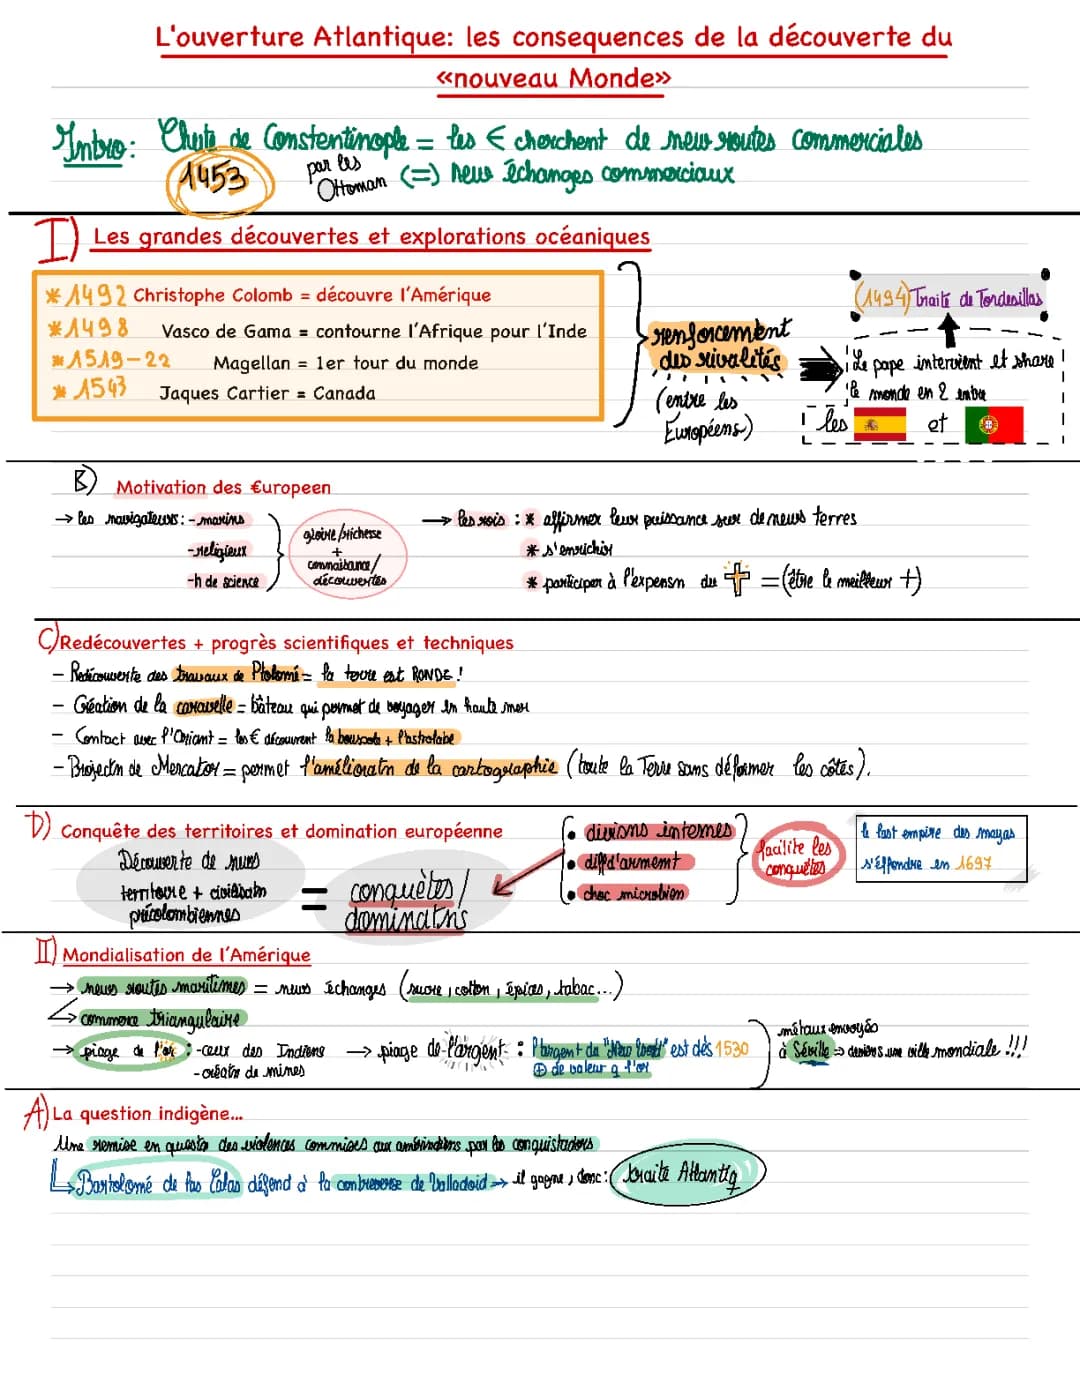 L'ouverture Atlantique: les consequences de la découverte du
«nouveau Monde»
Intro: Chute de Constentinople = les € cherchent de new routes commerciales
1453 par les Ottoman (=) news échanges commerciaux
I) Les grandes découvertes et explorations océaniques
* 1492 Christophe Colomb = découvre l'Amérique
* 1498 Vasco de Gama = contourne l'Afrique pour l'Inde
* 1519-22 Magellan = 1er tour du monde
* 1543 Jaques Cartier = Canada
renforcement
des rivalités
(entre les
Européens)
(1494) Traité de Tordesillas
Le pape intervient et share
le monde en 2 entre
les et
B) Motivation des €uropeen
→ les navigateurs: - marins
- religieux
- h de science
gloire/richesse
+
connaissance/
découvertes
→ les rois : * affirmer leur puissance sur de news terres
* s'enrichir
* participer à l'expensn du = (être le meilleur +)
C) Redécouvertes + progrès scientifiques et techniques
- Redécouverte des travaux de Ptolomé = la terre est RONDE !
- Création de la caravelle = bâteau qui permet de voyager en haute mer
- Contact avec l'Orient = les € découvrent la boussole + l'astrolabe
- Projectn de Mercator = permet l'amélioratn de la cartographie (toute la Terre sans déformer les côtes).
D) Conquête des territoires et domination européenne
Découverte de
territoire +
précolombiennes
= conquêtes/
dominatns
• divisions internes
• diff d'armemt
• choc microbien
facilite les
conquêtes
le last empire des mayas
s'éffondre en 1697
II) Mondialisation de l'Amérique
→ news routes maritimes = news échanges (sucre, cotton, épices, tabac...)
→ commerce triangulaire
→ piage de l'or : - ceux des Indiens → piage de l'argent : l'argent du "New World" est dès 1530
- créatn de mines
⊕ de valeur q l'or
métaux envoyés
à Séville ⇒ deviens une ville mondiale !!!
A) La question indigène...
Une remise en questn des violences commises aux amérindiens par les conquistadors
Bartolomé de las Calas défend à la controverse de Valladoid → il gagne, donc: traité Atlantiq